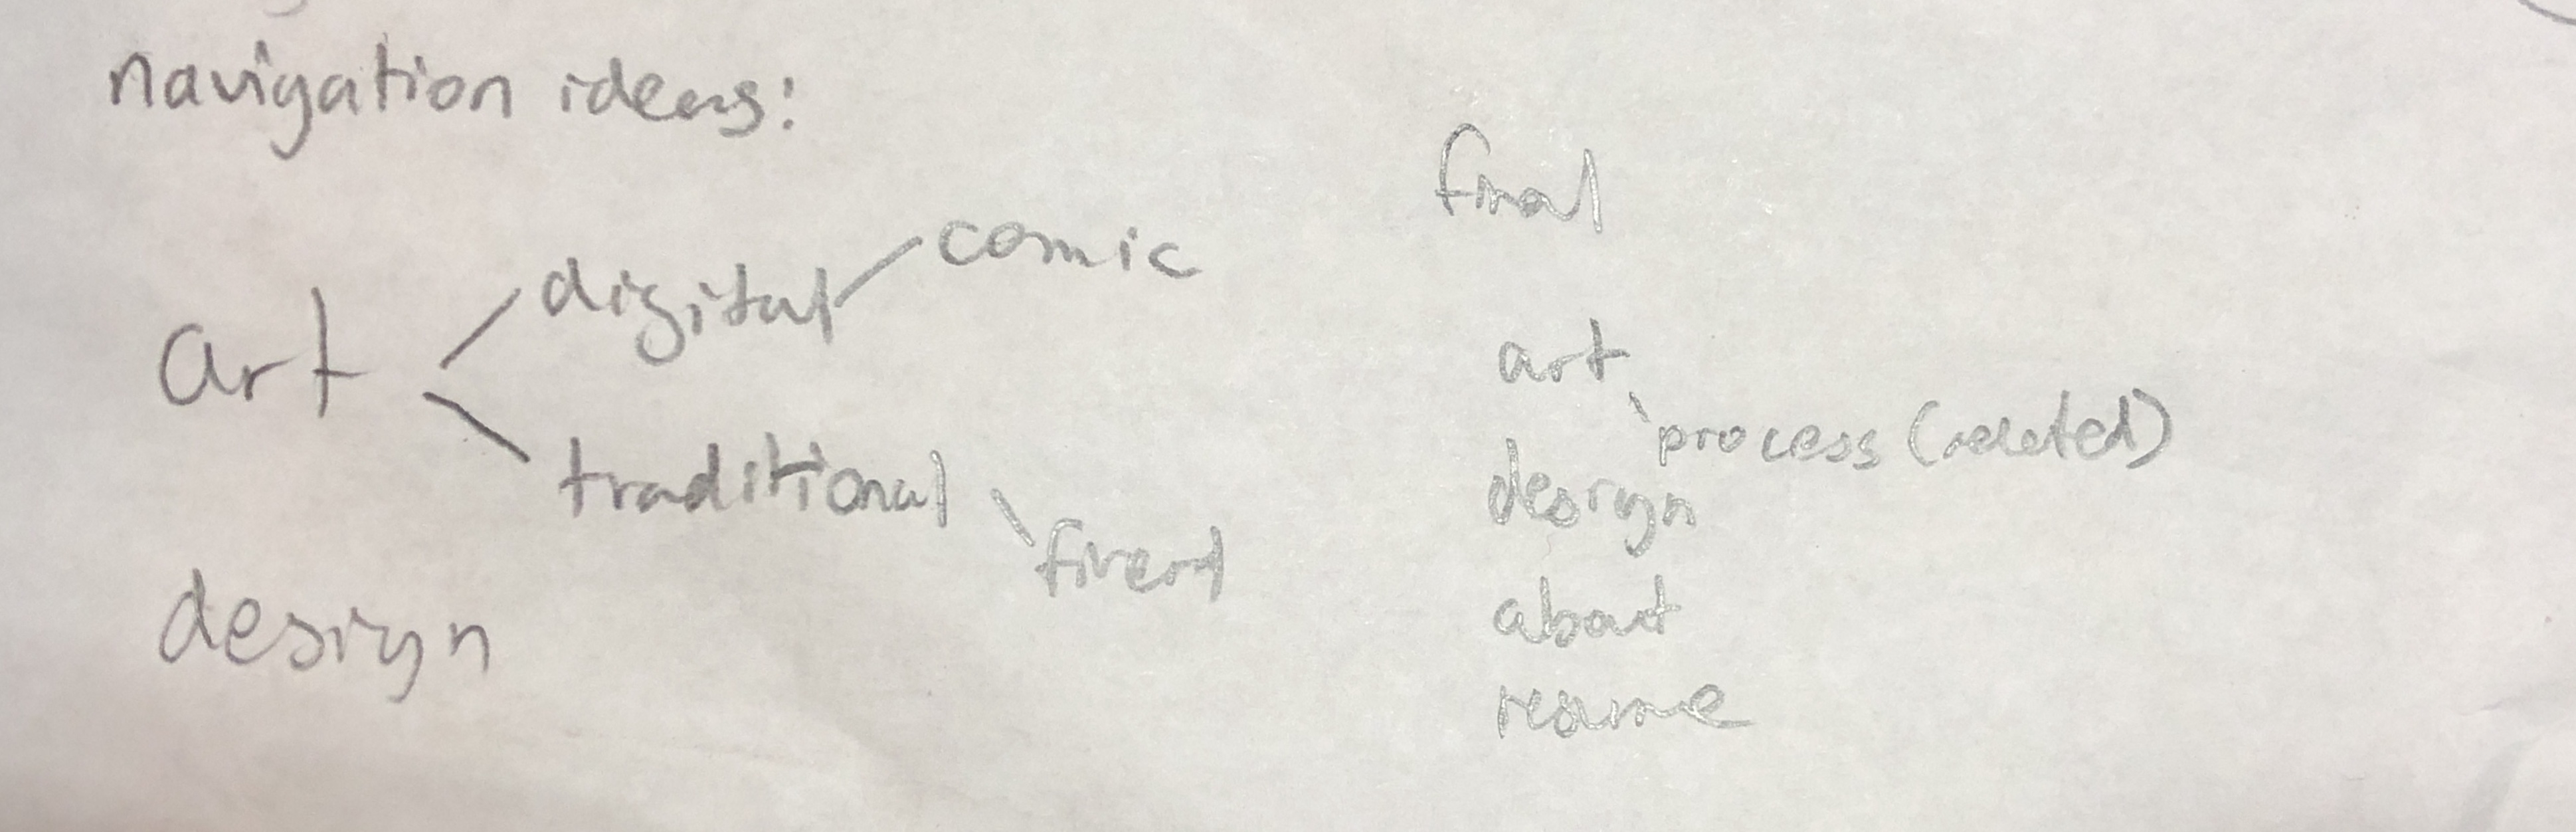 navigation ideas:
art
digital
comic
traditional
design
final
art
process
design
about
resume